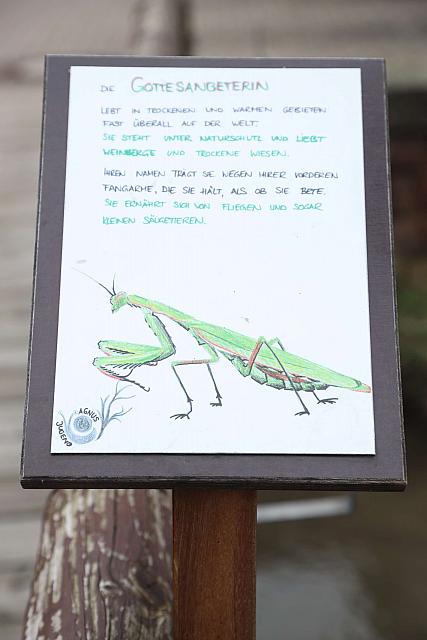 DIE GOTTESANBETERIN
LEBT IN TROCKENEN UND WARMEN GEBIETEN
FAST ÜBERALL AUF DER WELT.
SIE STEHT UNTER NATURSCHUTZ UND LIEBT
WEINBERGE UND TROCKENE WIESEN.
IHREN NAMEN TRÄGT SIE WEGEN IHRER VORDEREN
FANGARME, DIE SIE HÄLT, ALS OB SIE BETE.
SIE ERNÄHRT SICH VON FLIEGEN UND SOGAR
KLEINEN SÄUGETIEREN.
AGNUS
JUGEND